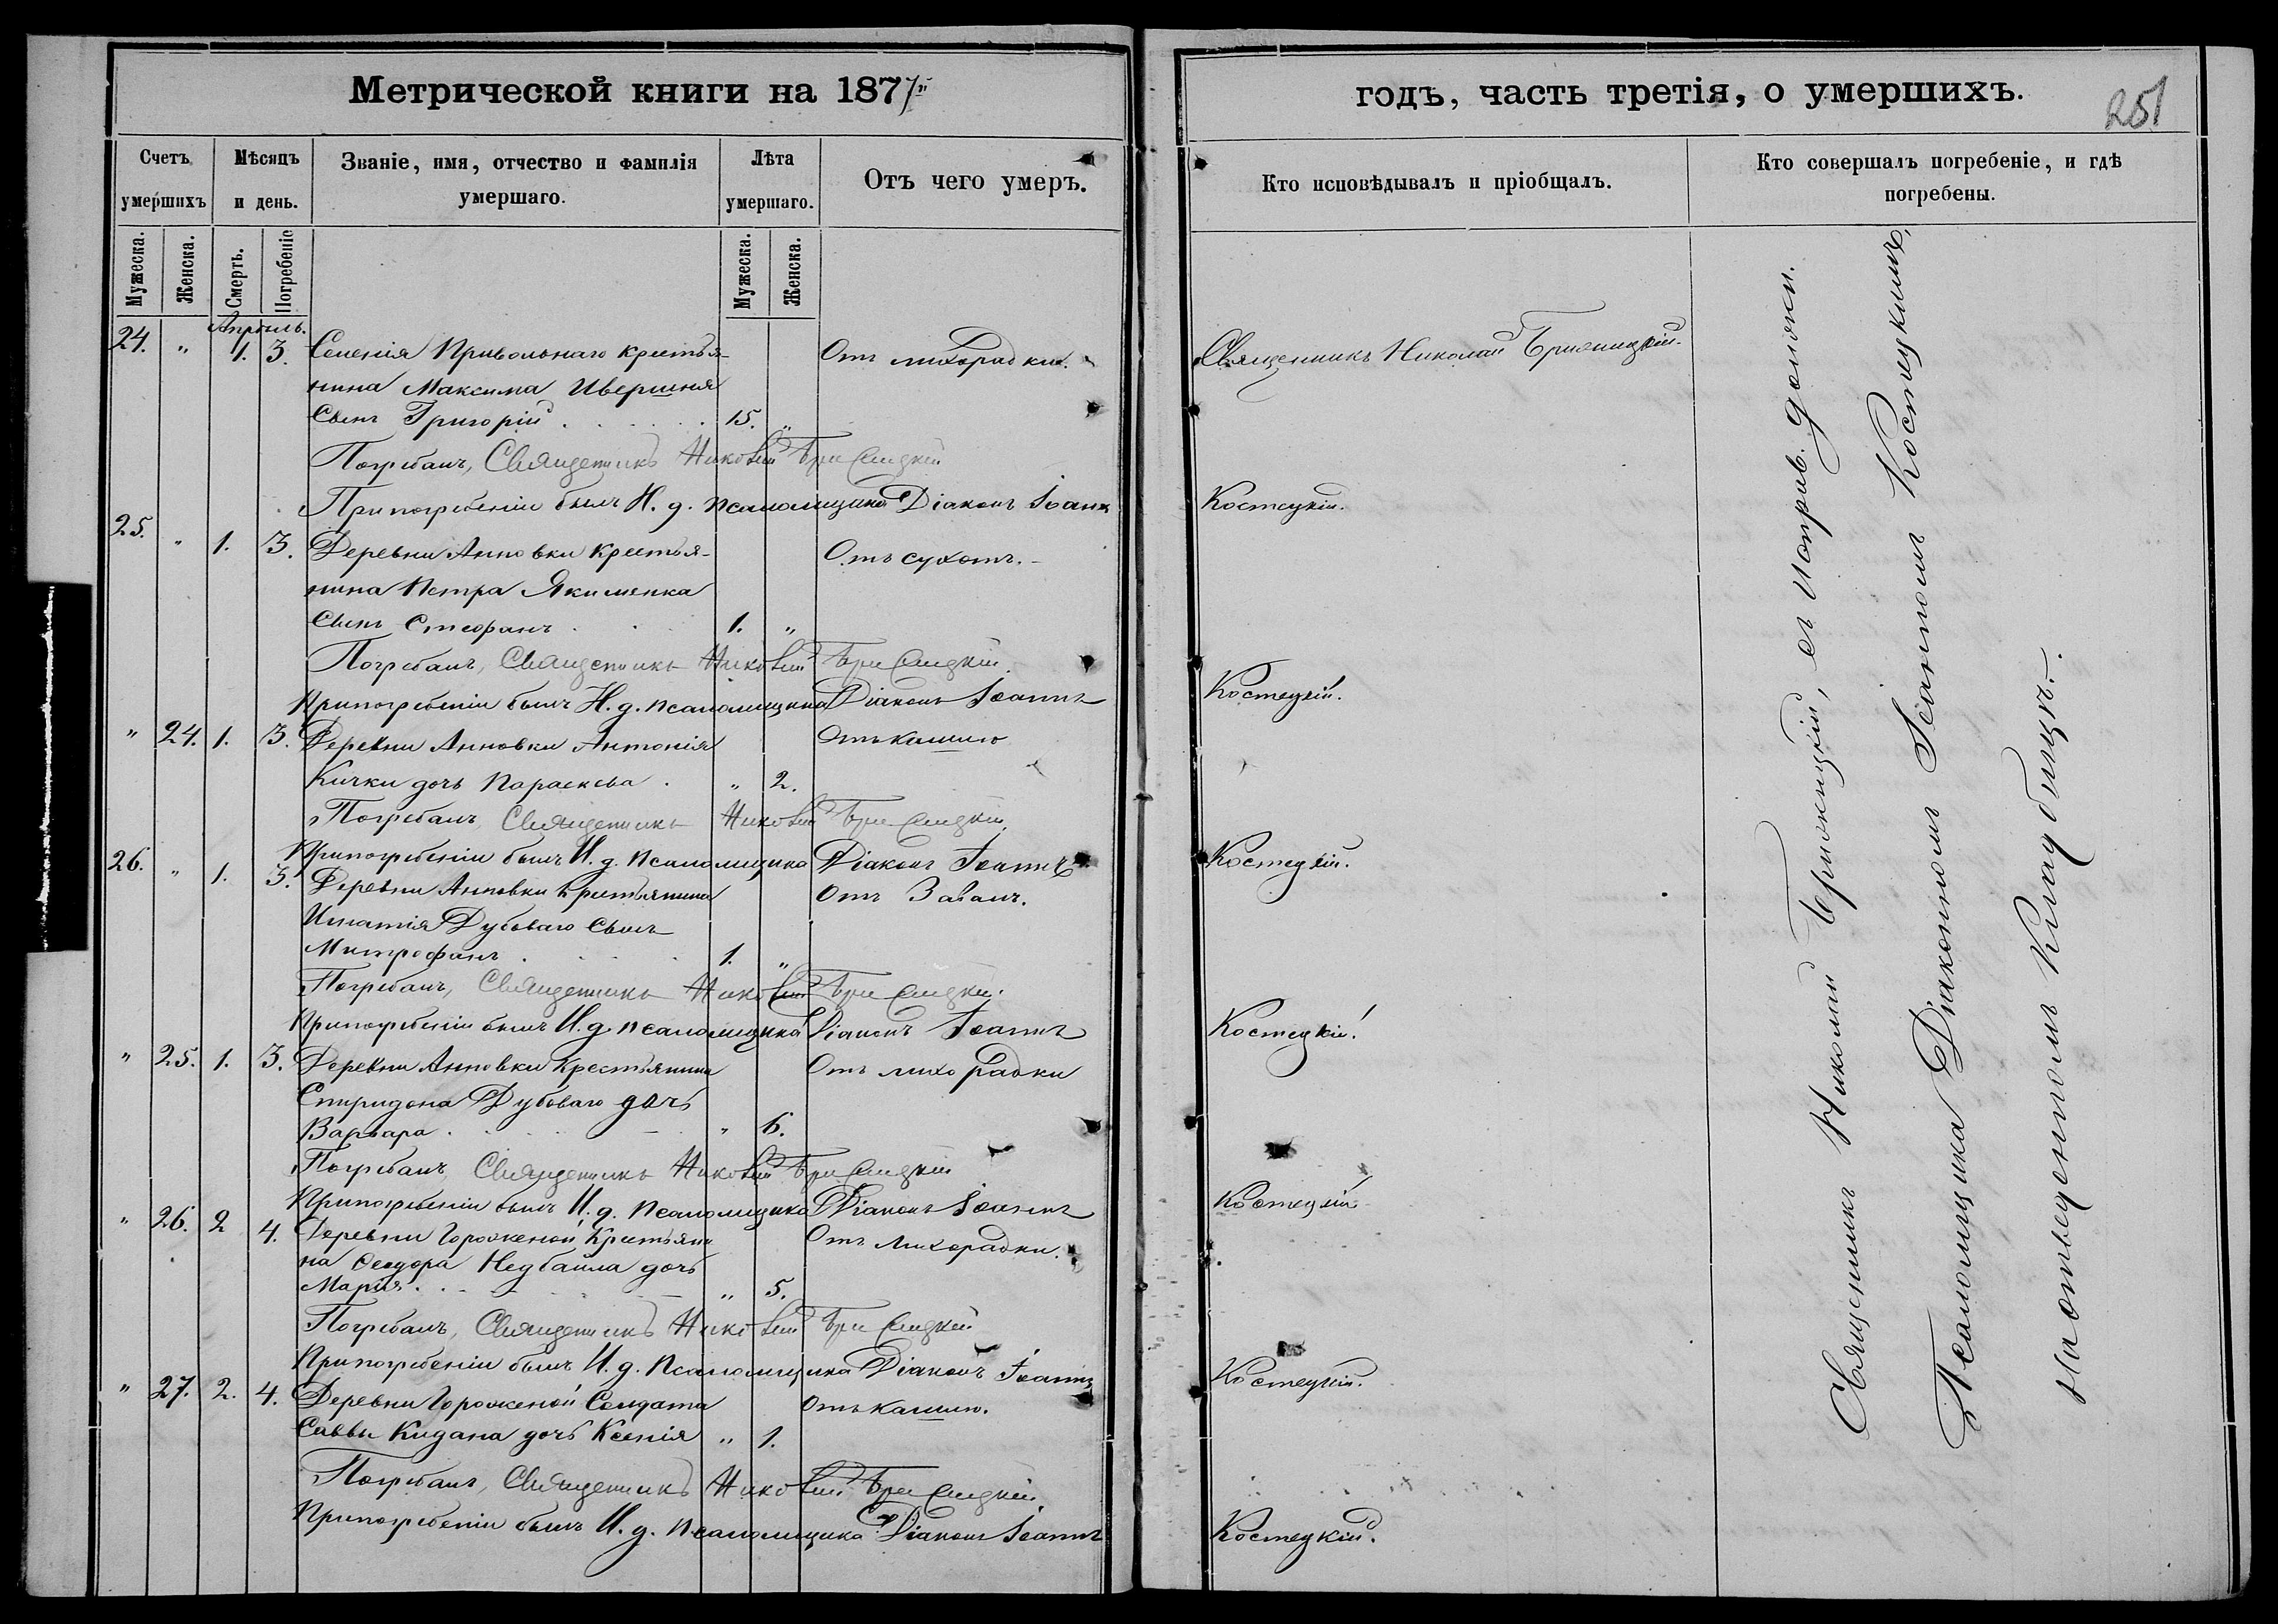 Метрической книги на 1877й
годъ, часть третія, о умершихъ.
251
Счетъ умершихъ
Мѣсяцъ и день.
Званіе, имя, отчество и фамилія умершаго.
Лѣта умершаго.
Отъ чего умеръ.
Кто исповѣдывалъ и пріобщалъ.
Кто совершалъ погребеніе, и гдѣ погребены.
Мужеска.
Женска.
Смерть.
Погребеніе
Мужеска.
Женска.
Апрѣль.
24. " 1. 3. Селенія Привольнаго крестья- Отъ лихорадки. Священникъ Николай
нина Максима Ивершня
Сынъ Григорій 15. "
Погребалъ, Священникъ Николай
При погребеніи былъ И. д. псаломщика Діаконъ Іоаннъ Костецкій.
25. " 1. 3. Деревни Анновки крестья- Отъ сухотъ.
нина Петра Якименка
Сынъ Стефанъ 1. "
Погребалъ, Священникъ Николай
При погребеніи былъ И. д. псаломщика Діаконъ Іоаннъ Костецкій.
" 24. 1. 3. Деревни Анновки Антонія Отъ кашлю
Кички дочь Параскева " 2.
Погребалъ, Священникъ Николай
При погребеніи былъ И. д. псаломщика Діаконъ Іоаннъ Костецкій.
26. " 1. 3. Деревни Анновки крестьянина Отъ
Игнатія Дубоваго сынъ
Митрофанъ 1. "
Погребалъ, Священникъ Николай
При погребеніи былъ И. д. псаломщика Діаконъ Іоаннъ Костецкій.
" 25. 1. 3. Деревни Анновки Крестьянина Отъ лихорадки
Спиридона Дубоваго дочь
Варвара " 6.
Погребалъ, Священникъ Николай
При погребеніи былъ И. д. псаломщика Діаконъ Іоаннъ Костецкій.
" 26. 2 4. Деревни Гороженой Крестьяни Отъ Лихорадки.
на Ѳеодора Недбайла дочь
Марія " 5.
Погребалъ, Священникъ Николай
При погребеніи былъ И. д. псаломщика Діаконъ Іоаннъ Костецкій.
" 27. 2. 4. Деревни Гороженой Солдата Отъ кашлю.
Саввы Кидана дочь Ксенія " 1.
Погребалъ, Священникъ Николай
При погребеніи былъ И. д. псаломщика Діаконъ Іоаннъ Костецкій.
Священникъ Николай съ исправ. должн.
Псаломщика Діакономъ Іоанномъ Костецкимъ,
на отведенномъ Кладбищѣ.